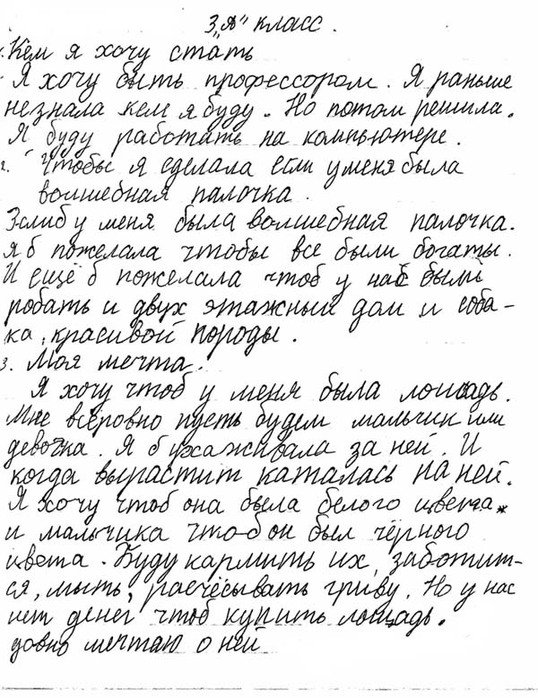 3 „А" класс.
1. Кем я хочу стать
Я хочу быть профессором. Я раньше
не знала кем я буду. Но потом решила.
Я буду работать на компьютере.
2. Чтобы я сделала если у меня была
волшебная палочка.
Эслиб у меня была волшебная палочка.
я б пожелала чтобы все были богаты.
И ещё б пожелала чтоб у нас были
робать и двух этажный дом и соба-
ка, красивой породы.
3. Моя мечта.
Я хочу чтоб у меня была лошадь.
Мне всёровно пусть будет мальчик или
девочка. Я б ухаживала за ней. И
когда вырастит каталась на ней.
Я хочу чтоб она была белого цвета.
и мальчика что-б он был чёрного
цвета. Буду кармить их, заботит-
ся, мыть, расчёсывать гриву. Но у нас
нет денег чтоб купить лошадь.
довно мечтаю о ней